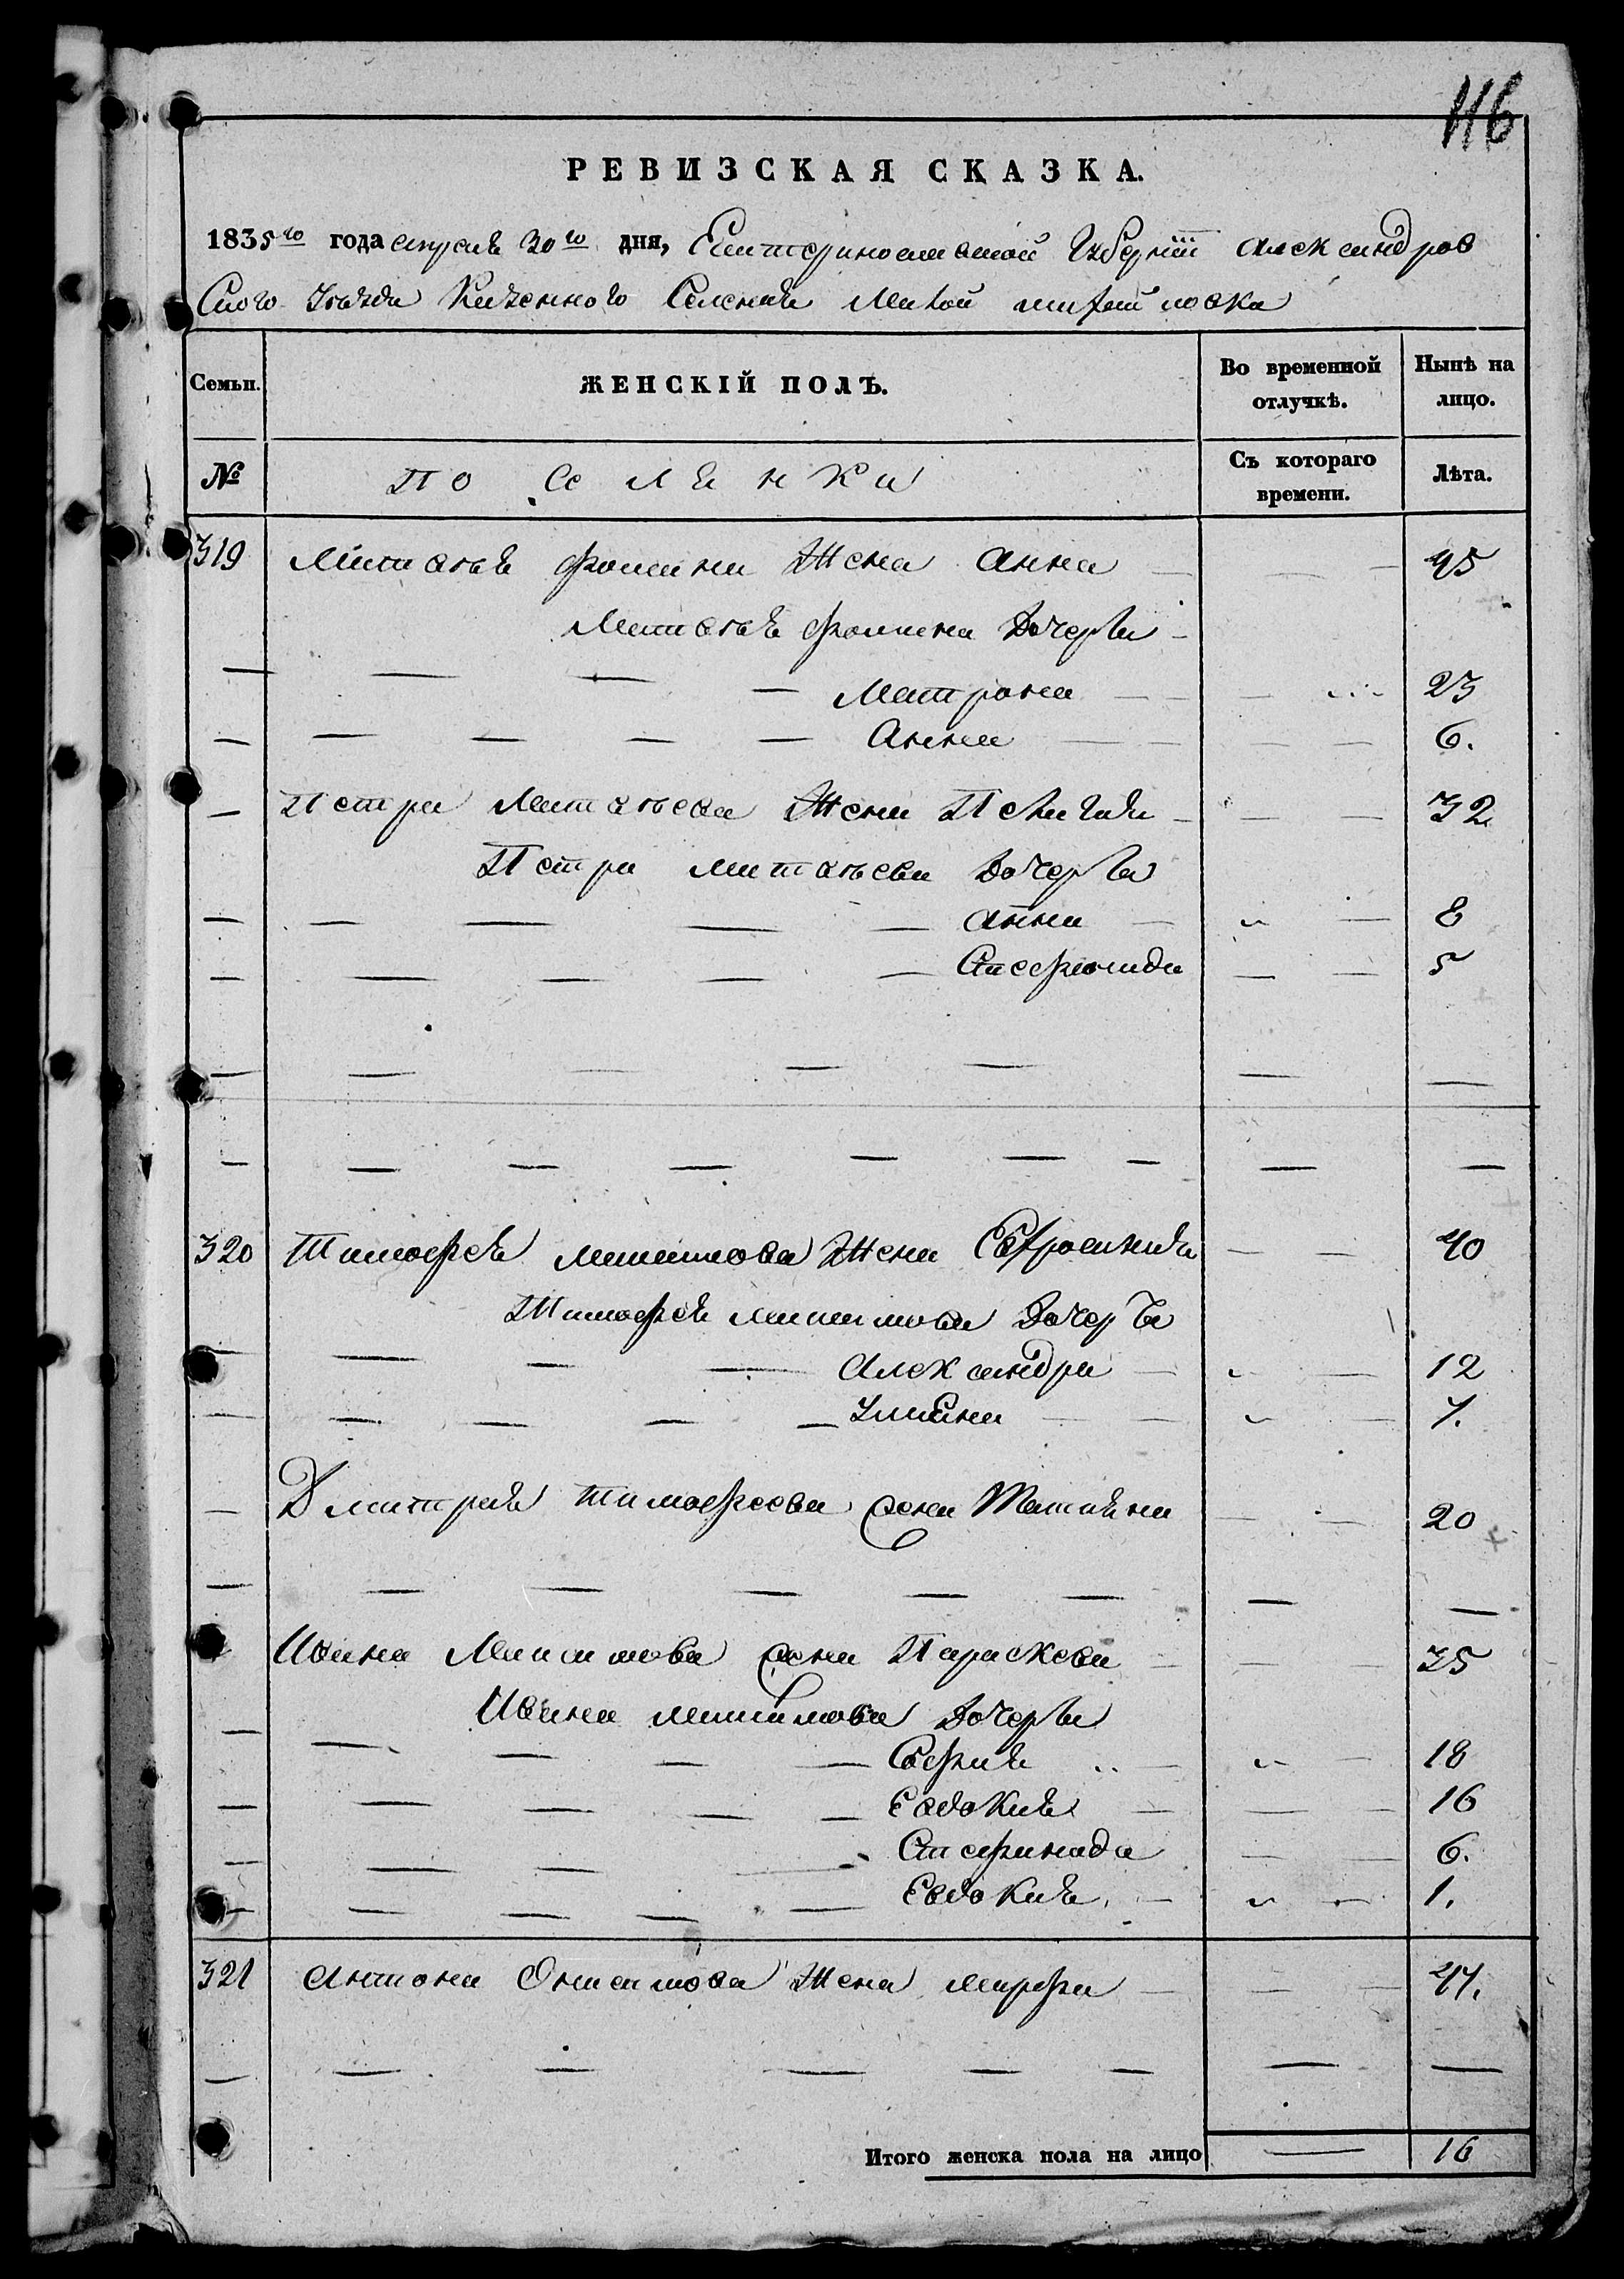 116
РЕВИЗСКАЯ СКАЗКА.
1835го года апреля 30го дня, Екатеринославской Губернiи Александров
Скаго Уезда Казенного Селения Малой михайловка
Семьи. ЖЕНСКІЙ ПОЛЪ. Во временной отлучкѣ. Нынѣ на лицо.
№ поселенки Съ котораго времени. Лѣта.
319 Матвѣя фомина Жена Анна 45
Матвѣя фомина Дочери
Матрона 23
Анна 6.
Петра Матвѣева Жена Пелагия 32
Петра матвѣева Дочери
Анна 8
Степонида 5
320 Тимофея Жена Ефросиния 40
Тимофея Дочери
Александра 12
Улияна 7.
Дмитрия тимофеева жена Татияна 20
Ивана жена Параскева 35
Ивана Дочери
София 18
Евдокия 16
6.
Евдокия 1.
321 Антона Онисимова Жена марфа 47.
Итого женска пола на лицо 16